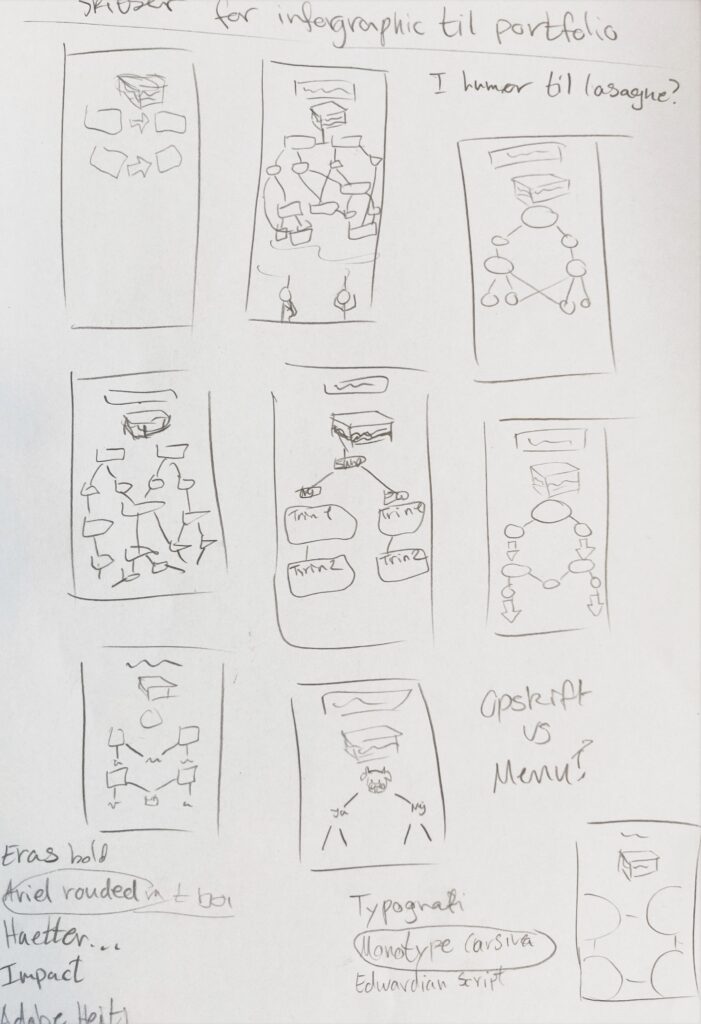 skitser for infographic til portfolio
I humør til lasagne?
Trin 1
Trin 2
Trin 1
Trin 2
Ja
Nej
Opskift
vs
Menu?
Eras bold
Ariel rouded
Haetter...
Impact
Typografi
Monotype Carsiva
Edwardian Script